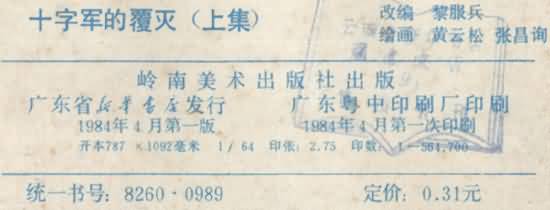 十字军的覆灭（上集）
改编 黎服兵
绘画 黄云松 张昌询
岭南美术出版社出版
广东省新华书店发行 广东粤中印刷厂印刷
1984年4月第一版 1984年4月第一次印刷
开本787×1092毫米 1/64 印张：2.75 印数：1—564,700
统一书号：8260·0989 定价：0.31元